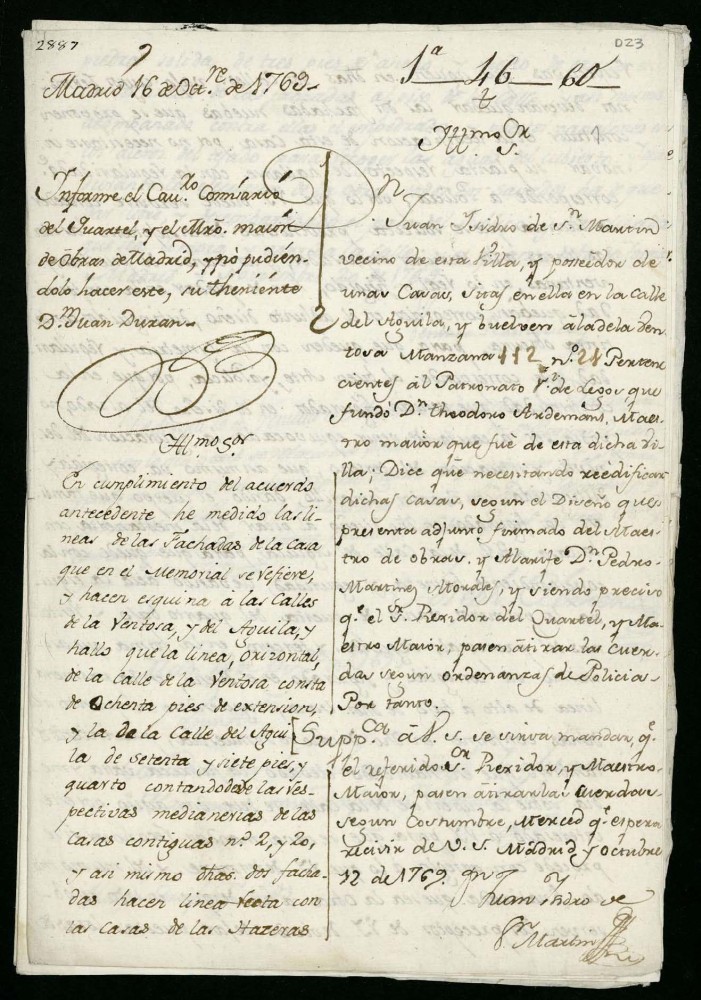 2887
023
1ª 46 60
Madrid 16 de Oct.re de 1769
Yllmo Sr
Informe el Cav.ro Comisario
del Quartel, y el Mro. maior
de obras de Madrid, y no pudien-
dolo hacer este, su theniente
Dn Juan Duran
Yllmo Sor
En cumplimiento del acuerdo
antecedente he medido las li-
neas de las Fachadas de la Casa
que en el Memorial se refiere,
y hacen esquina á las Calles
de la Ventosa, y del Aguila, y
hallo que la linea, orizontal,
de la Calle de la Ventosa consta
de Ochenta pies de extension,
y la de la Calle del Agui
la de setenta y siete pies, y
quarto contandolas de las res-
pectivas medianerias de las
Casas contiguas nº 2, y 20,
y asi mismo dhas. dos facha-
das hacen linea recta con
las Casas de las Hazeras
Dn Juan Isidro de Sn Martin
vecino de esta Villa, y posseidor de
unas Casas, sitas en ella en la Calle
del Aguila, y buelven á la de la Ven-
tosa Manzana 112 nº 21 Pertene
cientes ál Patronato Rl de Legos que
fundó Dn theodoro Ardemans, Maes-
tro maior que fué de esta dicha Vi-
lla; Dice que necesitando reedificar
dichas casas, segun el Diseño que
presenta adjunto firmado del Maes-
tro de obras, y Alarife Dn Pedro
Martinez Morales, y siendo preciso
q.e el Sr Rexidor del Quartel, y Ma-
estro Maior, pasen á tirar las Cuer-
das segun ordenanzas de Policia
Por tanto.
Suppca á V. S. se sirva mandar, q.e
el referido Sr Rexidor, y Maestro
Maior, pasen á tirar las Cuerdas
segun Costumbre, Merced q.e espera
recivir de V. S. Madrid y octubre
12 de 1769.
Juan Isidro de
Sn Martin